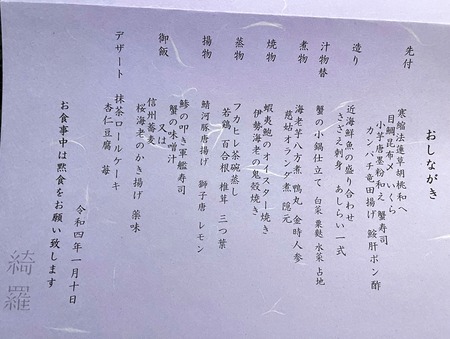 おしながき
先付
寒縮法蓮草胡桃和へ
目鯛昆布〆 いくら
小芋唐墨粉和え 蟹寿司
カンパチ竜田揚げ 鮟肝ポン酢
造り
近海鮮魚の盛り合わせ
さざえ刺身 あしらい一式
汁物替
蟹の小鍋仕立て 白菜 粟麩 水菜 占地
煮物
海老芋八方煮 鴨丸 金時人参
慈姑オランダ煮 隠元
焼物
蝦夷鮑のオイスター焼き
伊勢海老の鬼殻焼き
蒸物
フカヒレ茶碗蒸し
若鶏 百合根 椎茸 三つ葉
揚物
鯖河豚唐揚げ 獅子唐 レモン
御飯
鯵の叩き軍艦寿司
蟹の味噌汁
又は
信州蕎麦
桜海老のかき揚げ 薬味
デザート
抹茶ロールケーキ
杏仁豆腐 苺
令和四年一月十日
お食事中は黙食をお願い致します
綺羅